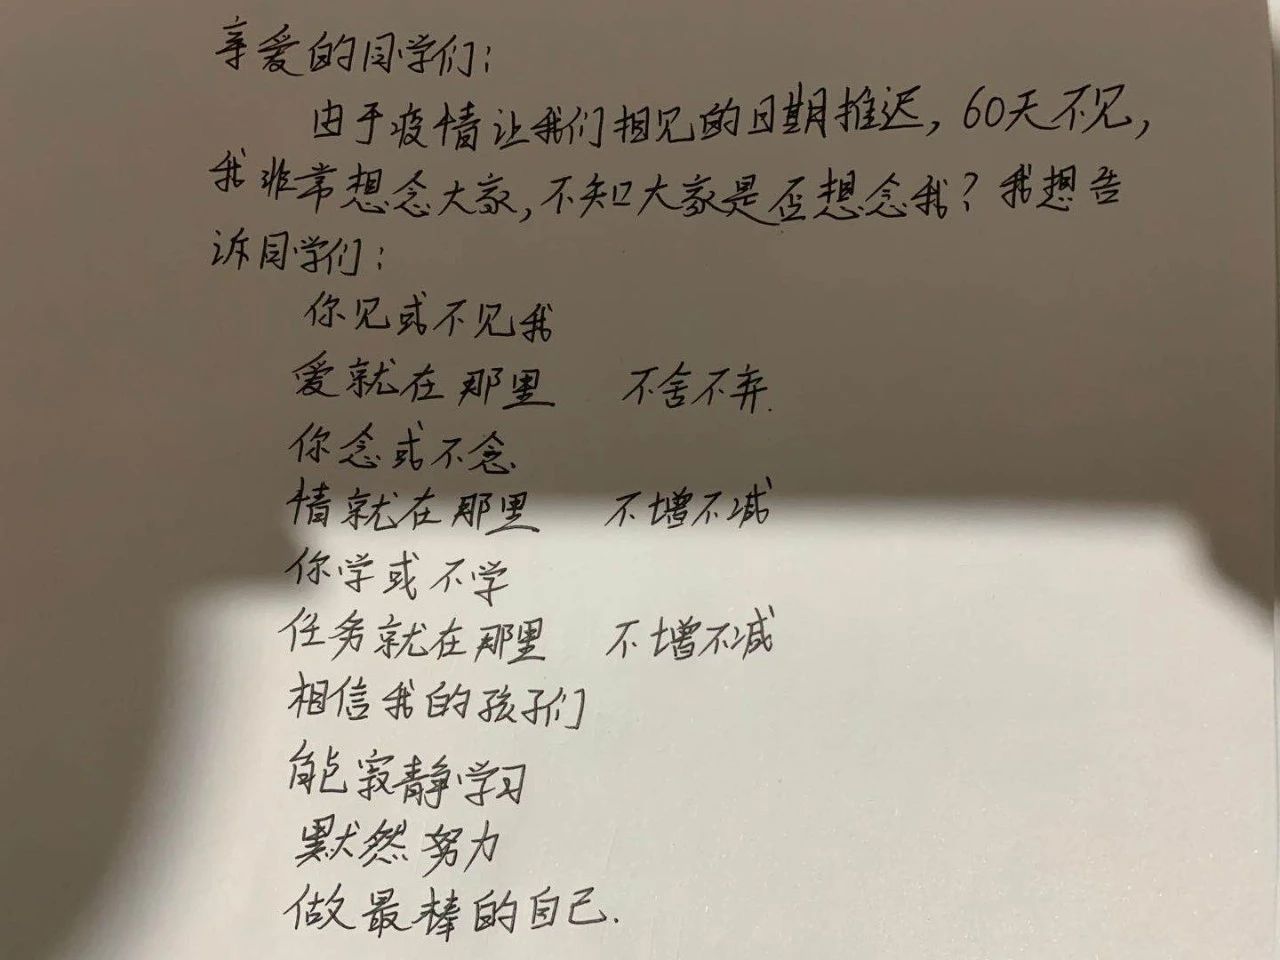 亲爱的同学们：
由于疫情让我们相见的日期推迟，60天不见，
我非常想念大家，不知大家是否想念我？我想告
诉同学们：
你见或不见我
爱就在那里 不舍不弃.
你念或不念
情就在那里 不增不减
你学或不学
任务就在那里 不增不减
相信我的孩子们
能寂静学习
默然努力
做最棒的自己.